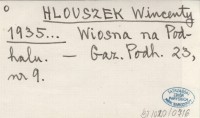 HLOUSZEK Wincenty
1935... Wiosna na Pod-
halu. — Gaz. Podh. 23,
nr 9.